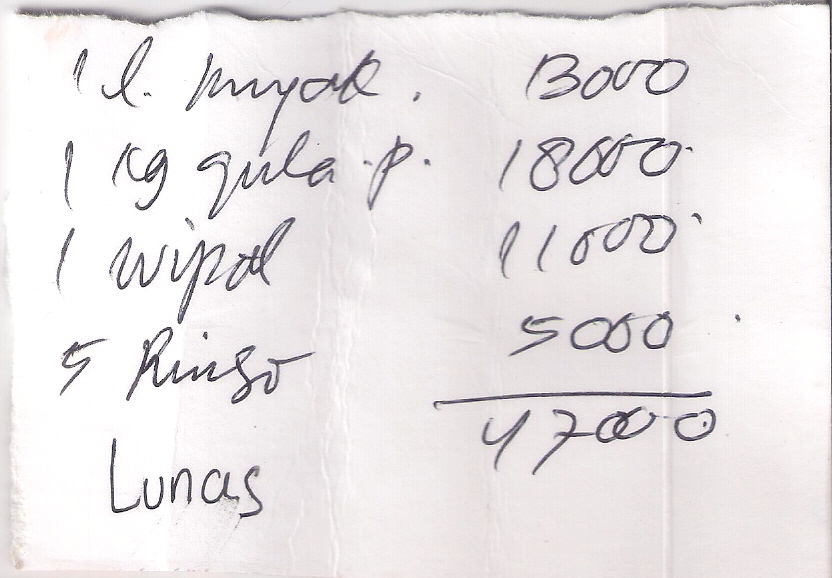 1 l. minyak . 13000
1 kg gula .p. 18000
1 wipol 11000
5 Rinso 5000
47000
Lunas